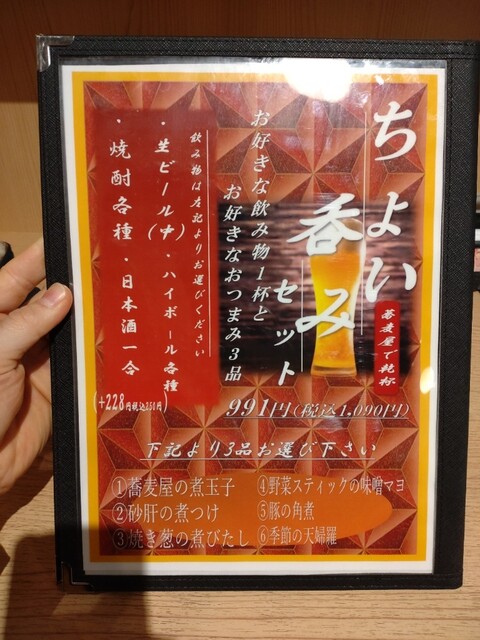 ちょい
呑み
セット
蕎麦屋で乾杯
お好きな飲み物1杯と
お好きなおつまみ3品
飲み物は左記よりお選びください
・生ビール(中)・ハイボール各種
・焼酎各種・日本酒一合
(+228円税込251円)
991円(税込1,090円)
下記より3品お選び下さい
①蕎麦屋の煮玉子
②砂肝の煮つけ
③焼き葱の煮びたし
④野菜スティックの味噌マヨ
⑤豚の角煮
⑥季節の天婦羅